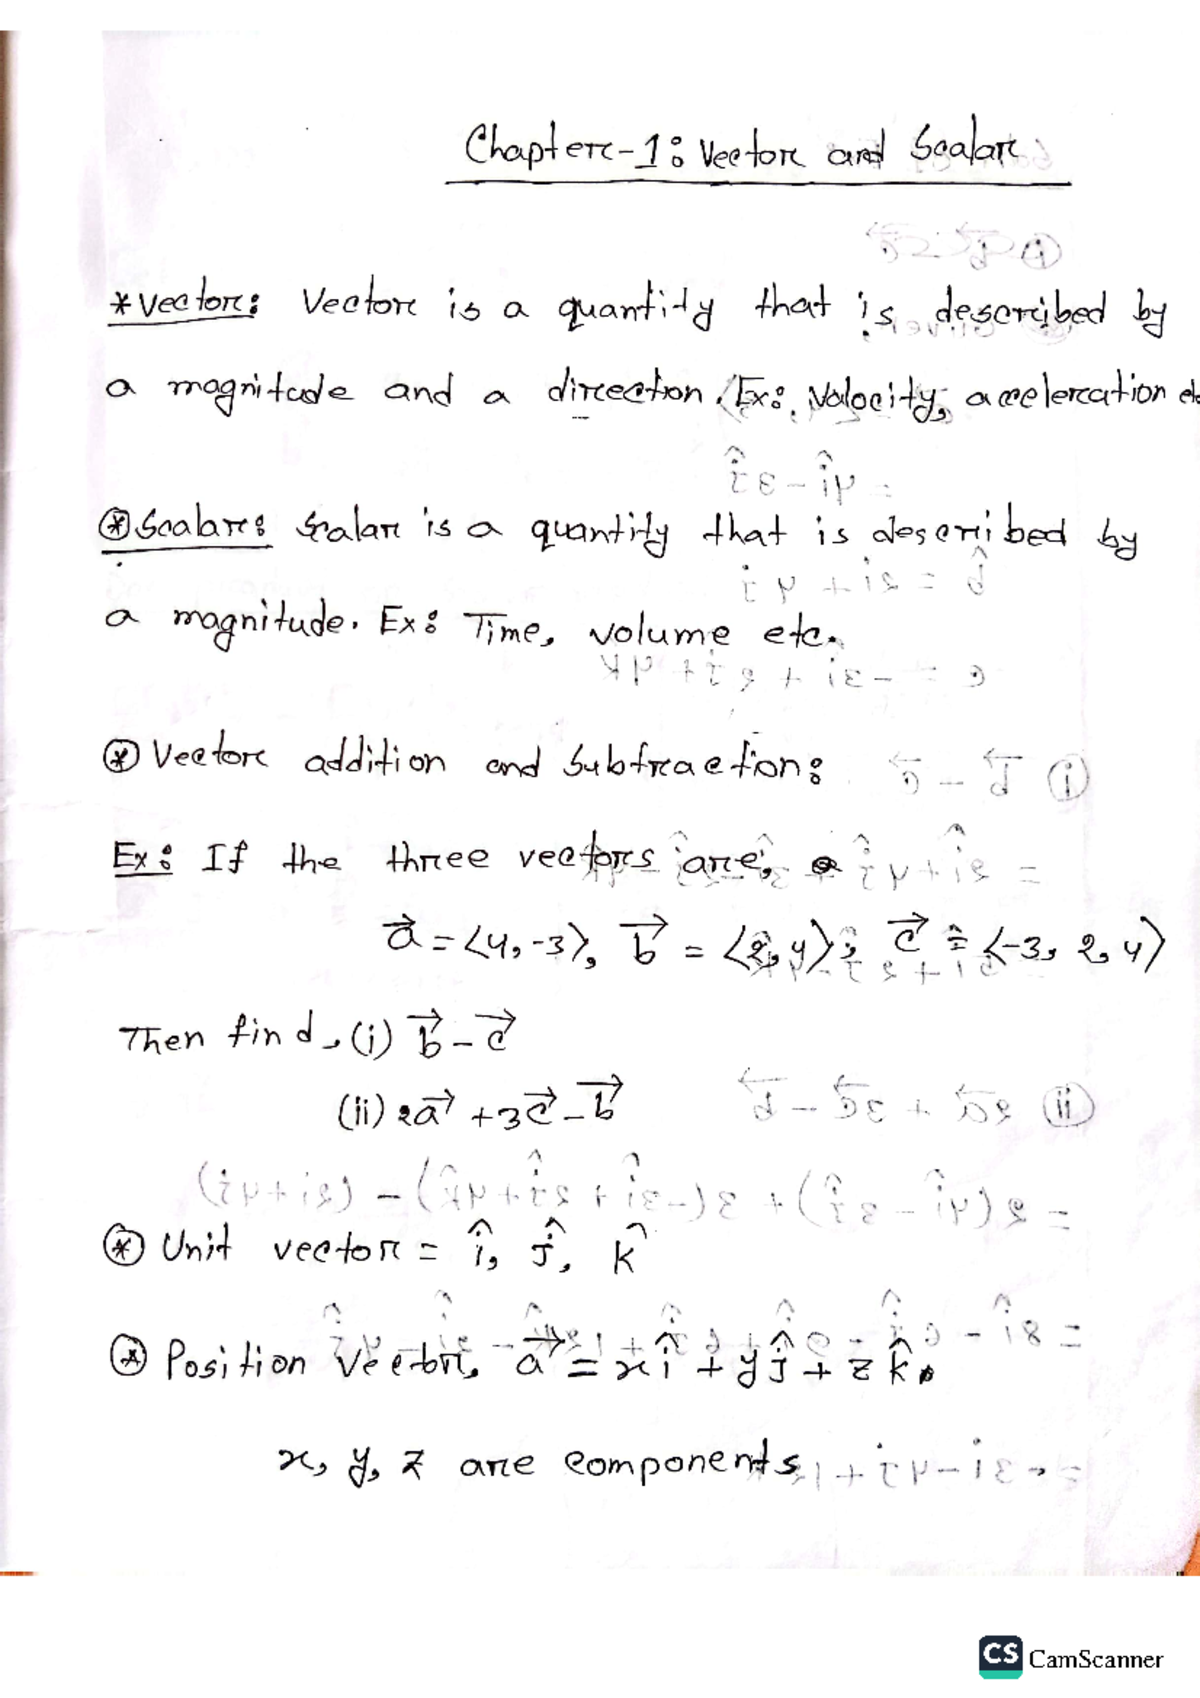 Chapter-1: Vector and Scalar
*Vector: Vector is a quantity that is described by
a magnitude and a direction. Ex: Valocity, acceleration etc
⊛ Scalar: Scalar is a quantity that is described by
a magnitude. Ex: Time, volume etc.
⊛ Vector addition and Subtraction:
Ex: If the three vectors are,
a⃗ = ⟨4, -3⟩, b⃗ = ⟨2, 4⟩, c⃗ = ⟨-3, 2, 4⟩
Then find, (i) b⃗ - c⃗
(ii) 2a⃗ + 3c⃗ - b⃗
⊛ Unit vector = î, ĵ, k̂
⊛ Position Vector, a⃗ = xî + yĵ + zk̂.
x, y, z are components
CS CamScanner